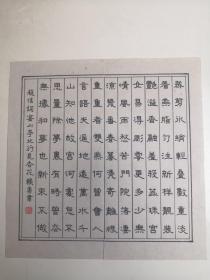 裁剪冰綃輕疊數重淡
着燕脂勻注新樣靚裝
豔溢香融羞殺蕊珠宮
女易得凋零更多少無
情風雨愁苦問院落淒
涼幾番春暮憑寄離恨
重重者雙燕何曾會人
言語天遙地遠萬水千
山知他故宮何處怎不
思量除夢裏有時曾去
無據和夢也新來不做
趙佶詞宴山亭北行見杏花 書